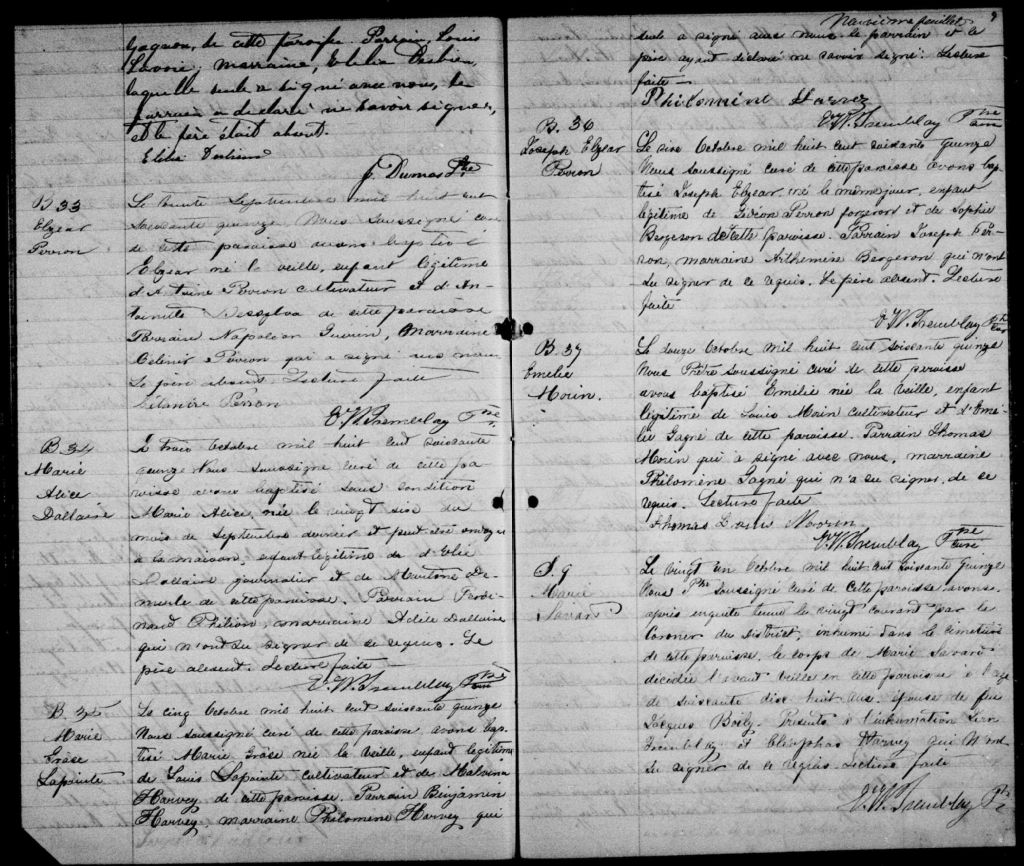 Gagnon, de cette paroisse. Parrain, Louis
Lavoie; marraine, Elelia
laquelle seule a signé avec nous, le
parrain a déclaré ne savoir signer,
et le père était absent.
J. Dumas Ptre
B 33
Elzear
Perron
Le trente Septembre mil huit cent
soixante quinze Nous soussigné curé
de cette paroisse avons baptisé
Elzear né la veille, enfant légitime
d'Antoine Perron cultivateur et d'An-
toinette Dessylva de cette paroisse
Parrain Napoleon Guerin, Marraine
Perron qui a signé avec nous
Le père absent Lecture faite
Perron
Tremblay Ptre
B. 34
Marie
Alice
Dallaire
Le trois Octobre mil huit cent soixante
quinze Nous soussigné curé de cette pa-
roisse avons baptisé sous condition
Marie Alice, née le vingt six du
mois de Septembre dernier et peut être ondoyée
à la maison, enfant légitime de d'Elie
Dallaire journalier et de
de cette paroisse. Parrain Ferdi-
nand Philion, marraine Adèle Dallaire
qui n'ont su signer de ce requis. Le
père absent. Lecture faite
Tremblay Ptre Curé
B. 35
Marie
Grâse
Lapointe
Le cinq Octobre mil huit cent soixante quinze
Nous soussigné curé de cette paroisse avons bap-
tisé Marie Grâse née la veille, enfant légitime
de Louis Lapointe cultivateur et de Malvina
Harvey de cette paroisse. Parrain Benjamin
Harvey, marraine Philomène Harvey qui
Neuvième feuillet 9
seule a signé avec nous le parrain et le
père ayant déclaré ne savoir signer. Lecture
faite —
Philomine Harvez
Tremblay Ptre Curé
B. 36
Joseph Elzear
Perron
Le six Octobre mil huit cent soixante quinze
Nous soussigné curé de cette paroisse avons bap-
tisé Joseph Elzear né le même jour, enfant
légitime de Gédéon Perron forgeron et de Sophie
Bergeron de cette paroisse. Parrain Joseph Per-
ron, marraine Arthemise Bergeron qui n'ont
su signer de ce requis. Le père absent. Lecture
faite
Tremblay Ptre Curé
B. 37
Emelie
Morin.
Le douze Octobre mil huit cent soixante quinze
Nous Prêtre soussigné curé de cette paroisse
avous baptisé Emélie née la veille, enfant
légitime de Louis Morin cultivateur et d'Emé-
lie Gagné de cette paroisse. Parrain Thomas
Morin qui a signé avec nous, marraine
Philomène Gagné qui n'a su signer de ce
requis. Lecture faite
Thomas Louis Moorin
Tremblay Ptre Curé
S. 9
Marie
Savard
Le vingt un Octobre mil huit cent soixante quinze
Nous Ptre soussigné curé de cette paroisse avons,
après enquête tenue le vingt courant par le
Coroner du District, inhumé dans le cimetière
de cette paroisse, le corps de Marie Savard
décédée l'avant veille en cette paroisse à l'age
de soixante dix huit ans, épouse de feu
Jacques Boily. Presents à l'inhumation
Tremblay et Cléophas Harvey qui n'ont
su signer de ce requis. Lecture faite
Tremblay Ptre